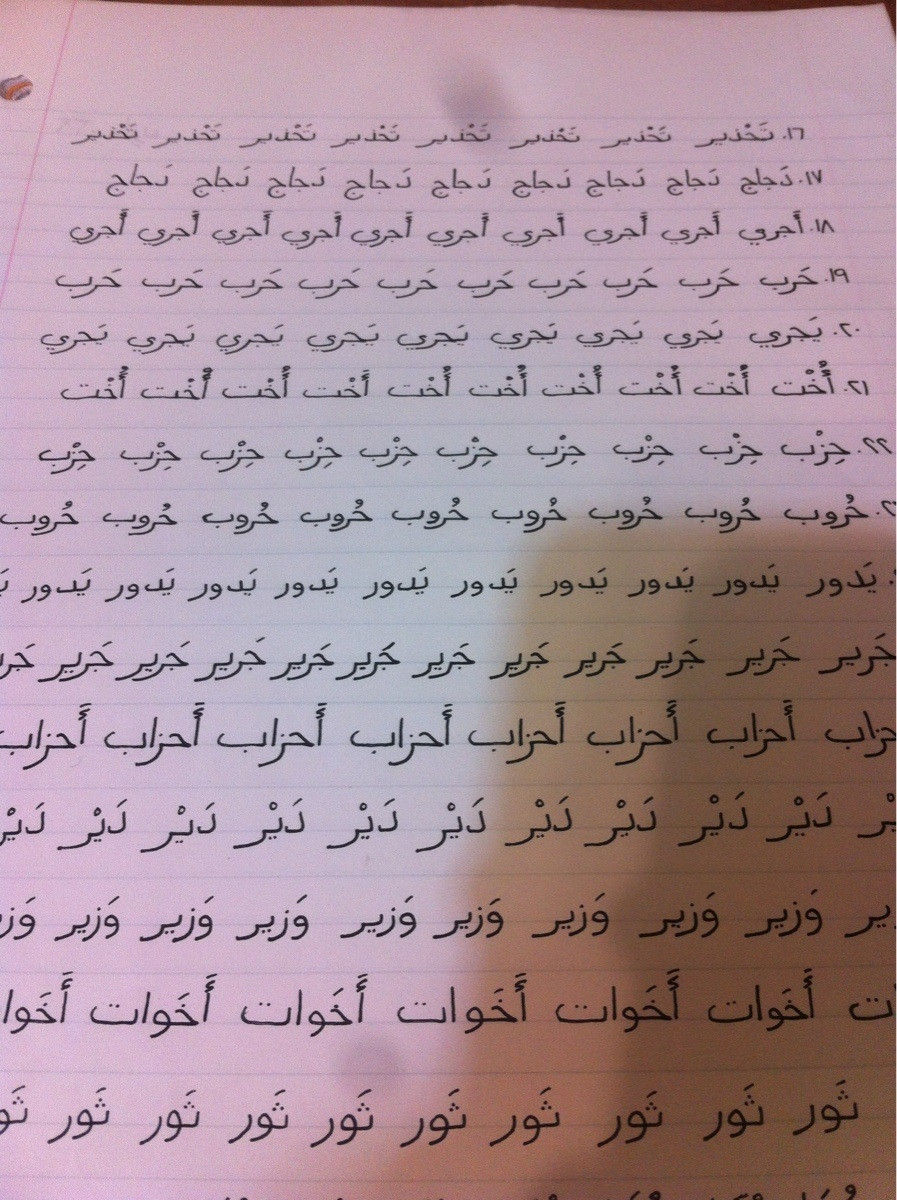 ١٦. تَحْذير تَحْذير تَحْذير تَحْذير تَحْذير تَحْذير تَحْذير تَحْذير
١٧. دَجاج دَجاج دَجاج دَجاج دَجاج دَجاج دَجاج دَجاج دَجاج
١٨. أَجري أَجري أَجري أَجري أَجري أَجري أَجري أَجري أَجري أَجري
١٩. حَرب حَرب حَرب حَرب حَرب حَرب حَرب حَرب حَرب حَرب
٢٠. يَجري يَجري يَجري يَجري يَجري يَجري يَجري يَجري يَجري
٢١. أُخْت أُخْت أُخْت أُخْت أُخْت أُخْت أَخْت أُخْت أُخْت أُخْت
٢٢. حِزْب حِزْب حِزْب حِزْب حِزْب حِزْب حِزْب حِزْب حِزْب حِزْب
خُروب خُروب خُروب خُروب خُروب خُروب خُروب خُروب خُروب
يَدور يَدور يَدور يَدور يَدور يَدور يَدور يَدور يَدور يَدور
جَرير جَرير جَرير جَرير جَرير جَرير جَرير جَرير جَرير جَرير جَرير
أَحزاب أَحزاب أَحزاب أَحزاب أَحزاب أَحزاب أَحزاب
دَيْر دَيْر دَيْر دَيْر دَيْر دَيْر دَيْر دَيْر دَيْر دَيْر
وَزير وَزير وَزير وَزير وَزير وَزير وَزير وَزير
أَخَوات أَخَوات أَخَوات أَخَوات أَخَوات
ثَور ثَور ثَور ثَور ثَور ثَور ثَور ثَور ثَور